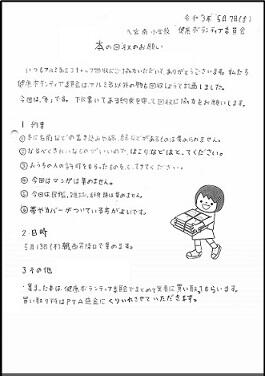 令和3年 5月7日(金)
小学校 健康ボランティア委員会
本の回収のお願い
いつもアルミ缶エコキャップ回収にご協力いただいて、ありがとうございます。私たち
健康ボランティア委員会はアルミ缶以外の物も回収しようと計画しました。
今回は、「本」です。下に書いてある約束を守って回収に協力をお願いします。
1 約束
①本に名前などの書きこみや線、絵などがあるものは集められません。
②なるべくきれいなものでいいので、ほこりなどはとってください。
③おうちの人の許可をもらったものをもってきてください。
④今回はマンガは集めません。
⑤今回は図鑑、雑誌、は集めません。
⑥帯やカバーがついている方がよいです。
2 日時
5月13日(木)朝 で集めます。
3 その他
・集まった本は、健康ボランティア委員会でまとめて業者に買い取ってもらいます。
買い取り料はPTA会にくりいれさせていただきます。